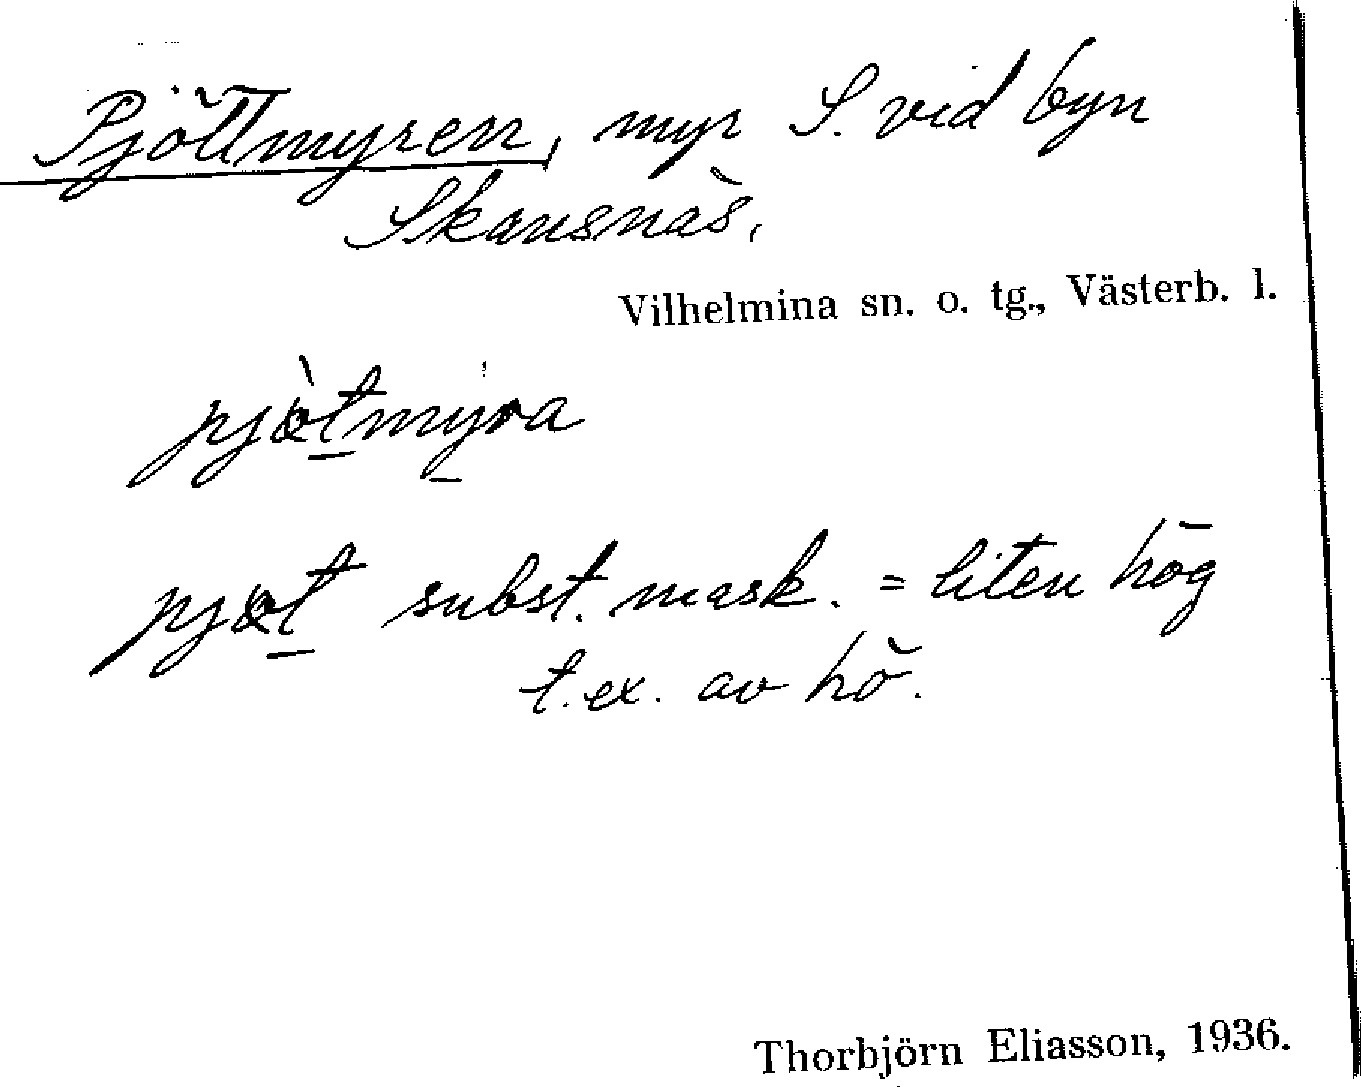 Pjöttmyren, myr S. vid byn
Skansnäs,
Vilhelmina sn. o. tg., Västerb. l.
pjòt̲mỵra
pjɵt̲ subst. mask. = liten hög
t.ex. av hö.
Thorbjörn Eliasson, 1936.